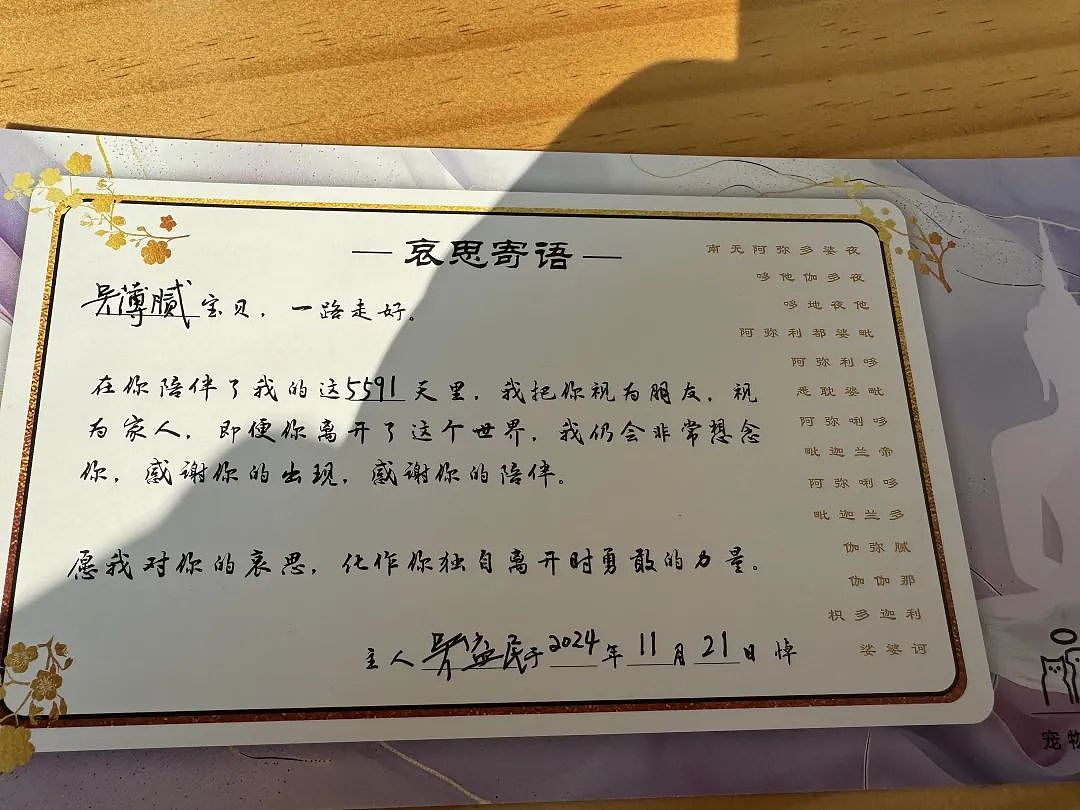 哀思寄语
吴薄腻宝贝，一路走好。
在你陪伴了我的这5591天里，我把你视为朋友，视
为家人，即便你离开了这个世界，我仍会非常想念
你，感谢你的出现，感谢你的陪伴。
愿我对你的哀思，化作你独自离开时勇敢的力量。
主人吴益民于2024年11月21日悼
南无阿弥多婆夜
哆他伽多夜
哆地夜他
阿弥利都婆毗
阿弥利哆
悉耽婆毗
阿弥唎哆
毗迦兰帝
阿弥唎哆
毗迦兰多
伽弥腻
伽伽那
枳多迦利
娑婆诃
宠物